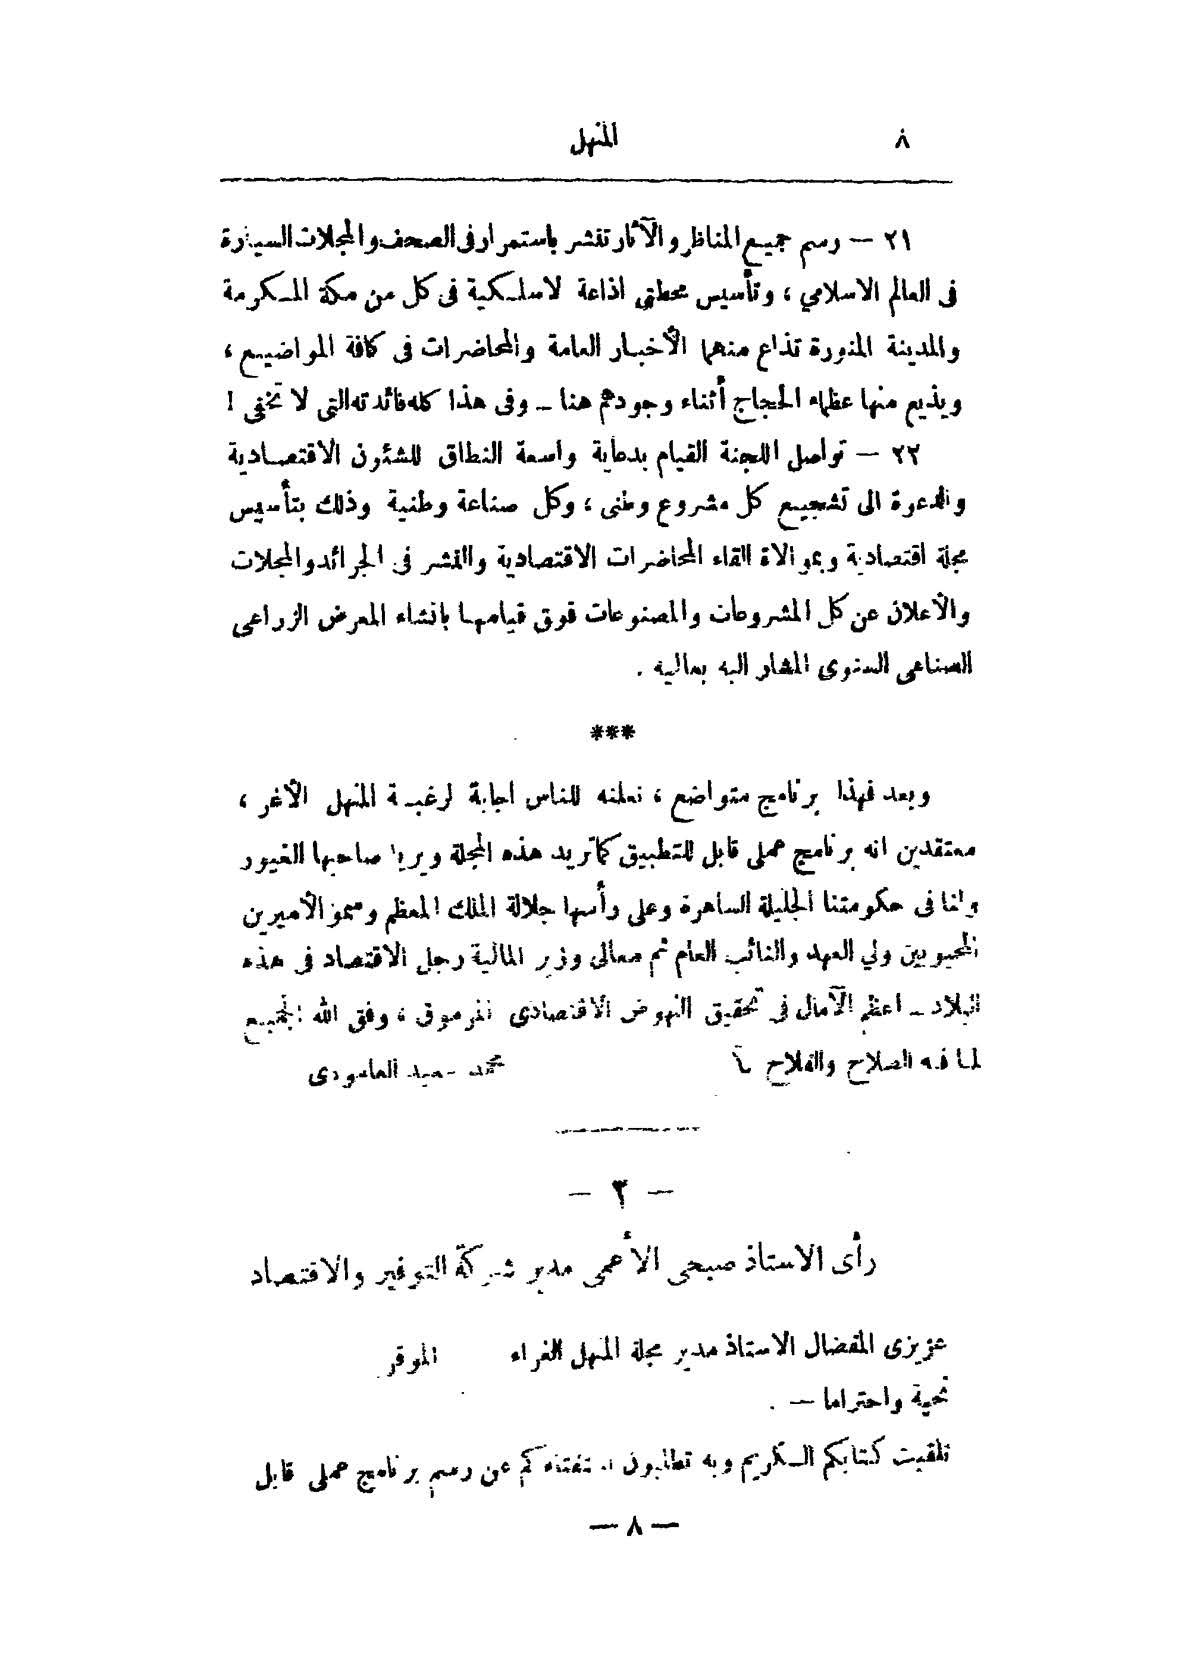 ٨ المنهل
٢١ — رسم جميع المناظر والآثار تنشر باستمرار في الصحف والمجلات السيارة
فى العالم الاسلامي ، وتأسيس محطتى اذاعة لاسلكية فى كل من مكة المكرمة
والمدينة المنورة تذاع منهما الأخبار العامة والمحاضرات فى كافة المواضيع ،
ويذيع منها عظماء الحجاج أثناء وجودهم هنا – وفى هذا كله فائدته التى لا تخفى !
٢٢ — تواصل اللجنة القيام بدعاية واسعة النطاق للشئون الاقتصادية
والدعوة الى تشجيع كل مشروع وطنى ، وكل صناعة وطنية وذلك بتأسيس
مجلة اقتصادية وبموالاة القاء المحاضرات الاقتصادية والنشر فى الجرائد والمجلات
والاعلان عن كل المشروعات والمصنوعات فوق قيامها بانشاء المعرض الزراعى
الصناعى السنوى المشار اليه بعاليه .
***
وبعد فهذا برنامج متواضع ، نعلنه للناس اجابة لرغبة المنهل الأغر ،
معتقدين انه برنامج عملى قابل للتطبيق كما تريد هذه المجلة ويريد صاحبها الغيور
ولنا فى حكومتنا الجليلة الساهرة وعلى رأسها جلالة الملك المعظم وسمو الأميرين
المحبوبين ولي العهد والنائب العام ثم معالى وزير المالية رجل الاقتصاد فى هذه
البلاد – اعظم الآمال فى تحقيق النهوض الاقتصادى المرموق ، وفق الله الجميع
لما فيه الصلاح والفلاح محمد سعيد العامودى
— ٣ —
رأى الاستاذ صبحى الأعمى مدير شركة التوفير والاقتصاد
عزيزى المفضال الاستاذ مدير مجلة المنهل الغراء الموقر
تحية واحتراما — .
تلقيت كتابكم الكريم وبه تطلبون عن رسم برنامج عملى قابل
— ٨ —